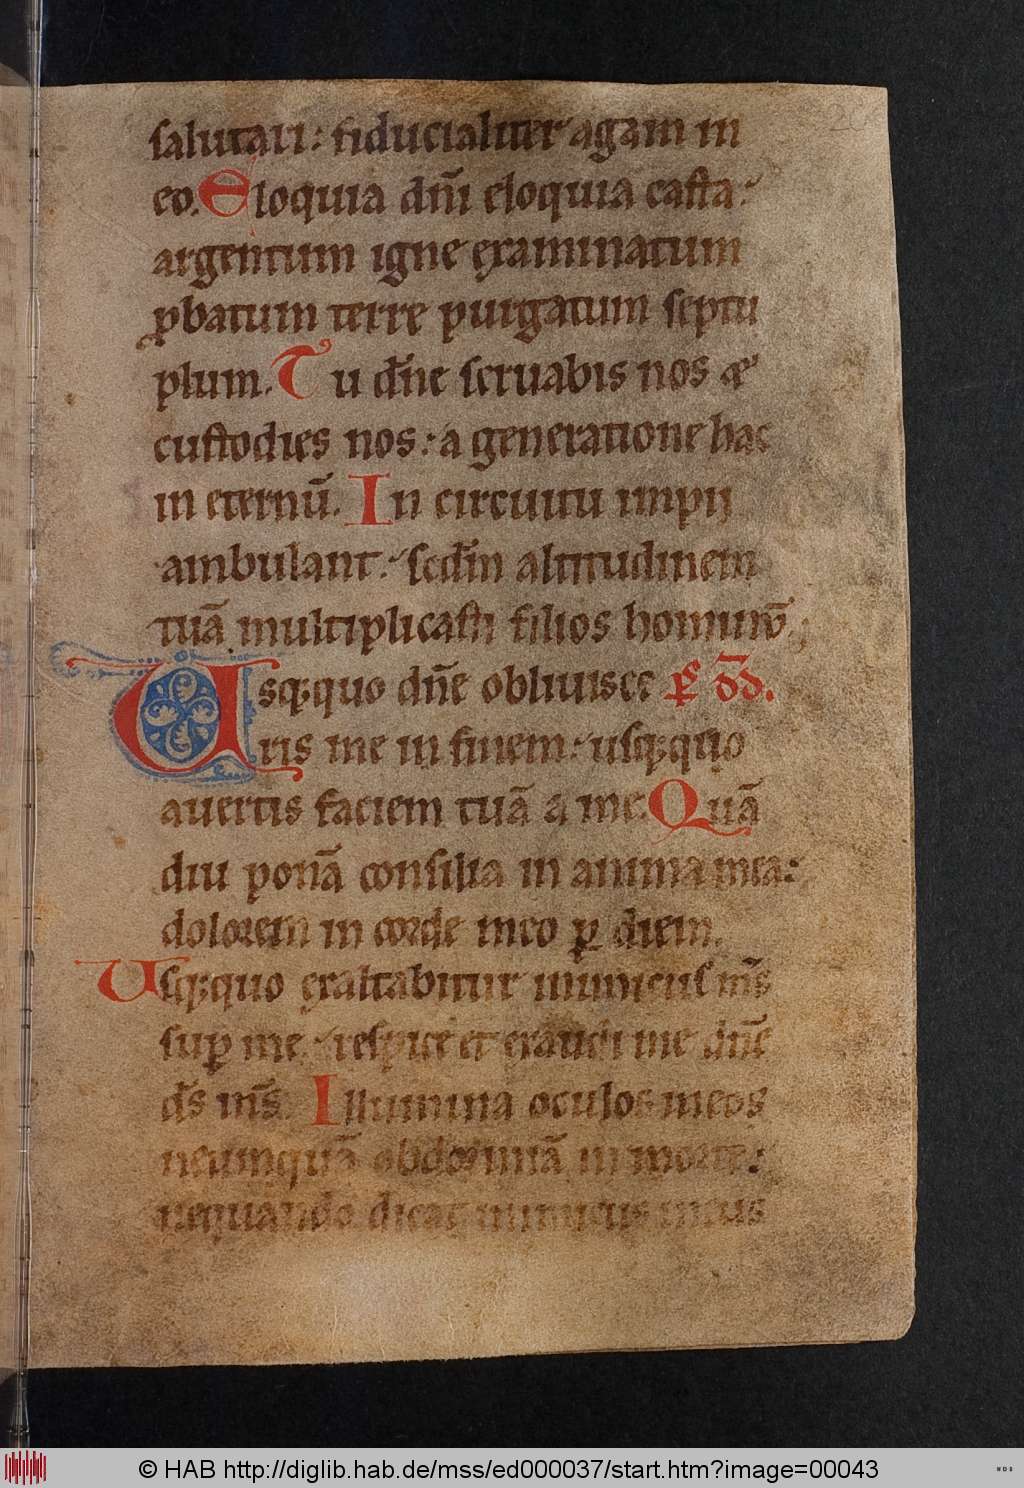 20
salutari: fiducialiter agam in
eo. Eloquia dñi eloquia casta:
argentum igne examinatum
ꝓbatum terre purgatum septu
plum. Tu dñe seruabis nos et
custodies nos: a generatione hac
in eternū. In circuitu impij
ambulant: scdm altitudinem
tuā multiplicasti filios hominū.
Usq;quo dñe obliuisce p̄s dd̄.
ris me in finem: usq;quo
auertis faciem tuā a me. Quā
diu ponā consilia in anima mea:
dolorem in corde meo ꝑ diem.
Usq;quo exaltabitur inimicus m̄s
suꝑ me: respice et exaudi me dñe
ds̄ ms̄. Illumina oculos meos
neumquā obdormiā in morte:
nequando dicat inimicus meus
© HAB http://diglib.hab.de/mss/ed000037/start.htm?image=00043